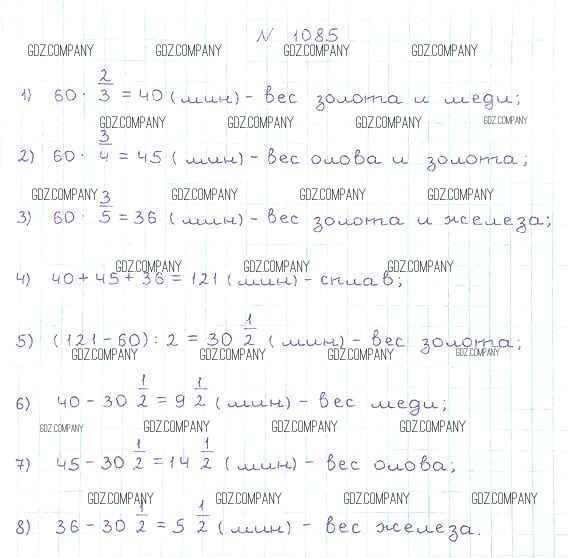 N 1085
GDZ.COMPANY GDZ.COMPANY GDZ.COMPANY GDZ.COMPANY
1) 60 · 2/3 = 40 (мин) - вес золота и меди;
GDZ.COMPANY GDZ.COMPANY GDZ.COMPANY GDZ.COMPANY
2) 60 · 3/4 = 45 (мин) - вес олова и золота;
GDZ.COMPANY GDZ.COMPANY GDZ.COMPANY GDZ.COMPANY
3) 60 · 3/5 = 36 (мин) - вес золота и железа;
GDZ.COMPANY GDZ.COMPANY GDZ.COMPANY
4) 40 + 45 + 36 = 121 (мин) - сплав;
5) (121 - 60) : 2 = 30 1/2 (мин) - вес золота;
GDZ.COMPANY GDZ.COMPANY GDZ.COMPANY GDZ.COMPANY
6) 40 - 30 1/2 = 9 1/2 (мин) - вес меди;
GDZ.COMPANY GDZ.COMPANY GDZ.COMPANY GDZ.COMPANY
7) 45 - 30 1/2 = 14 1/2 (мин) - вес олова;
GDZ.COMPANY GDZ.COMPANY GDZ.COMPANY GDZ.COMPANY
8) 36 - 30 1/2 = 5 1/2 (мин) - вес железа.